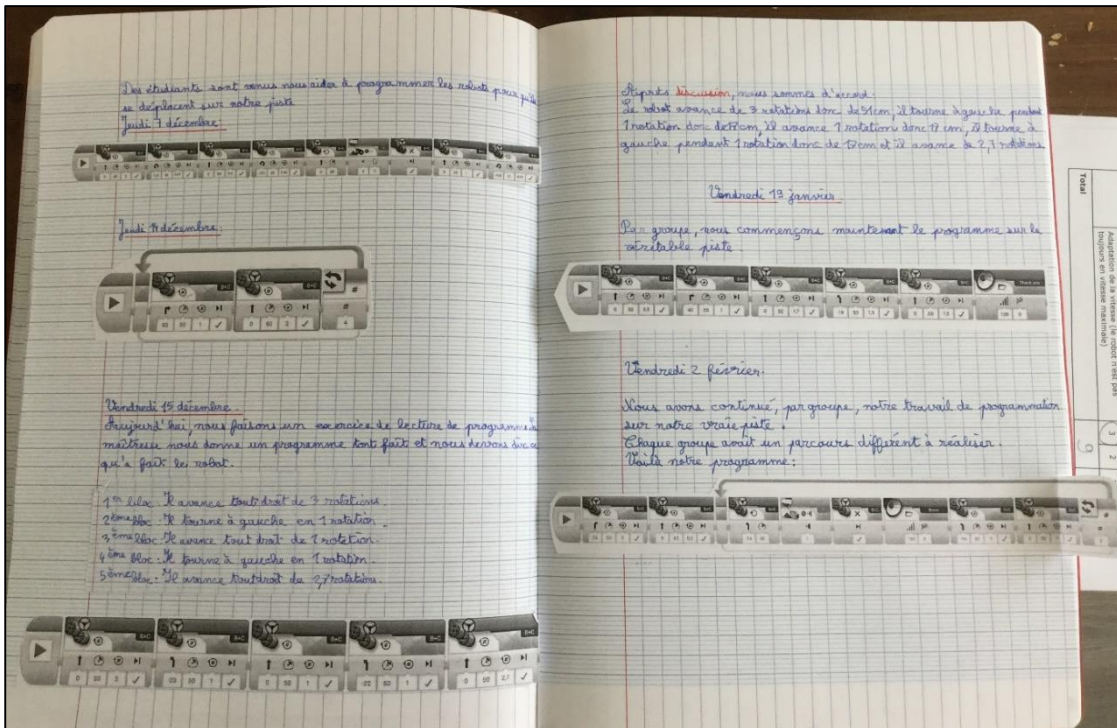 Des étudiants sont venus nous aider à programmer les robots pour qu'ils
se déplacent sur notre piste
Jeudi 7 décembre:
Jeudi 14 décembre:
B+C
B+C
#
60 50 1
0 50 3
4
Vendredi 15 décembre.
Aujourd'hui, nous faisons un exercice de lecture de programme. La
maîtresse nous donne un programme tout fait et nous devons dire ce
qu'a fait le robot.
1er bloc: Il avance tout droit de 3 rotations.
2ème bloc: Il tourne à gauche en 1 rotation.
3ème bloc: Il avance tout droit de 1 rotation.
4ème bloc: Il tourne à gauche en 1 rotation.
5ème bloc: Il avance tout droit de 2,7 rotations.
B+C
B+C
B+C
B+C
B+C
0 50 3
50 1
0 50 1
50 1
0 50 2,7
Après discussion, nous sommes d'accord:
Le robot avance de 3 rotations donc de 51 cm, il tourne à gauche pendant
1 rotation donc de 17 cm, il avance 1 rotation donc 17 cm, il tourne à
gauche pendant 1 rotation donc de 17 cm et il avance de 2,7 rotations.
Vendredi 19 janvier.
Par groupe, nous commençons maintenant le programme sur la
véritable piste
Thank you
100
Vendredi 2 février.
Nous avons continué, par groupe, notre travail de programmation
sur notre vraie piste.
Chaque groupe avait un parcours différent à réaliser.
Voilà notre programme:
Adaptation de la vitesse (le robot n'est pas
toujours en vitesse maximale)
3
2
Total
9